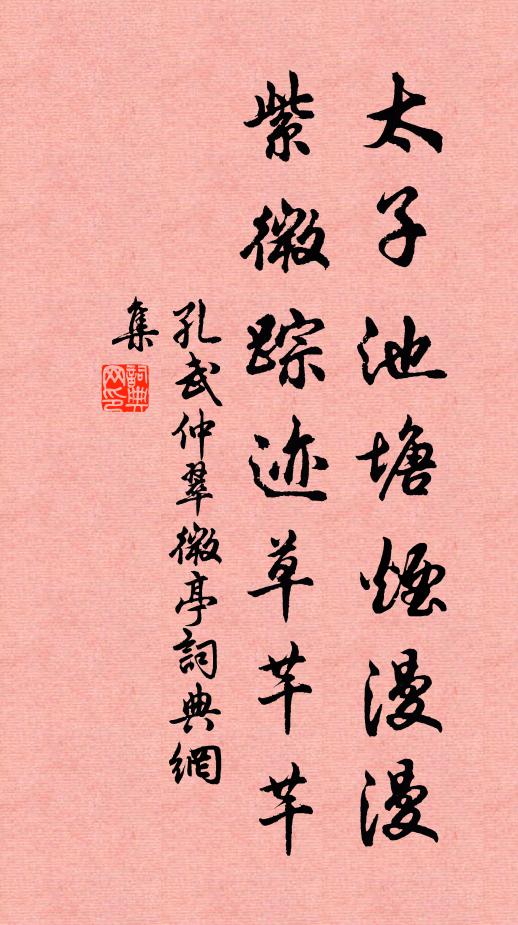 太子池塘煙漫漫
紫微踪迹草芊芊
孔武仲翠微亭詞典網
集
詞典
网印